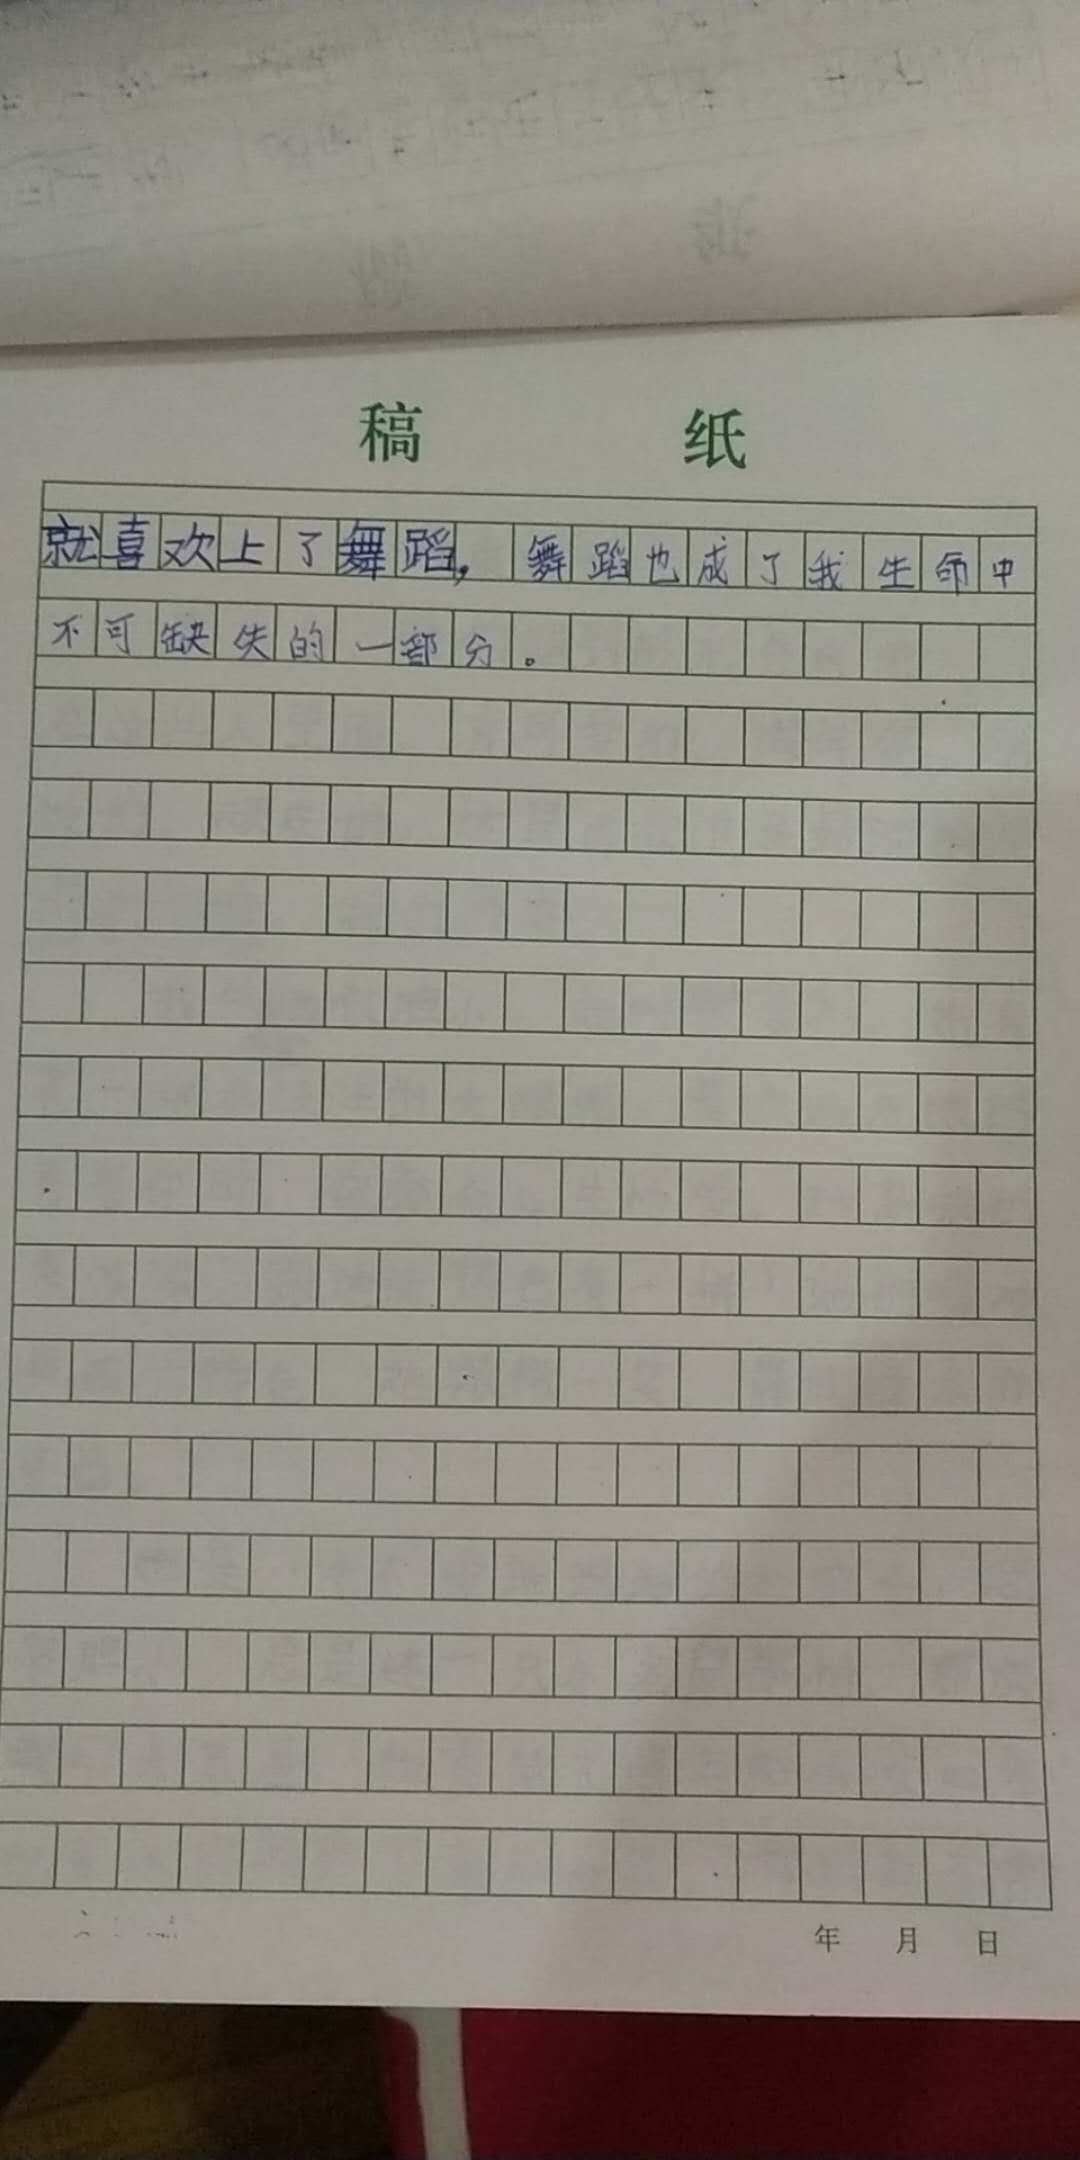 稿 纸
就喜欢上了舞蹈,舞蹈也成了我生命中
不可缺失的一部分。
年 月 日